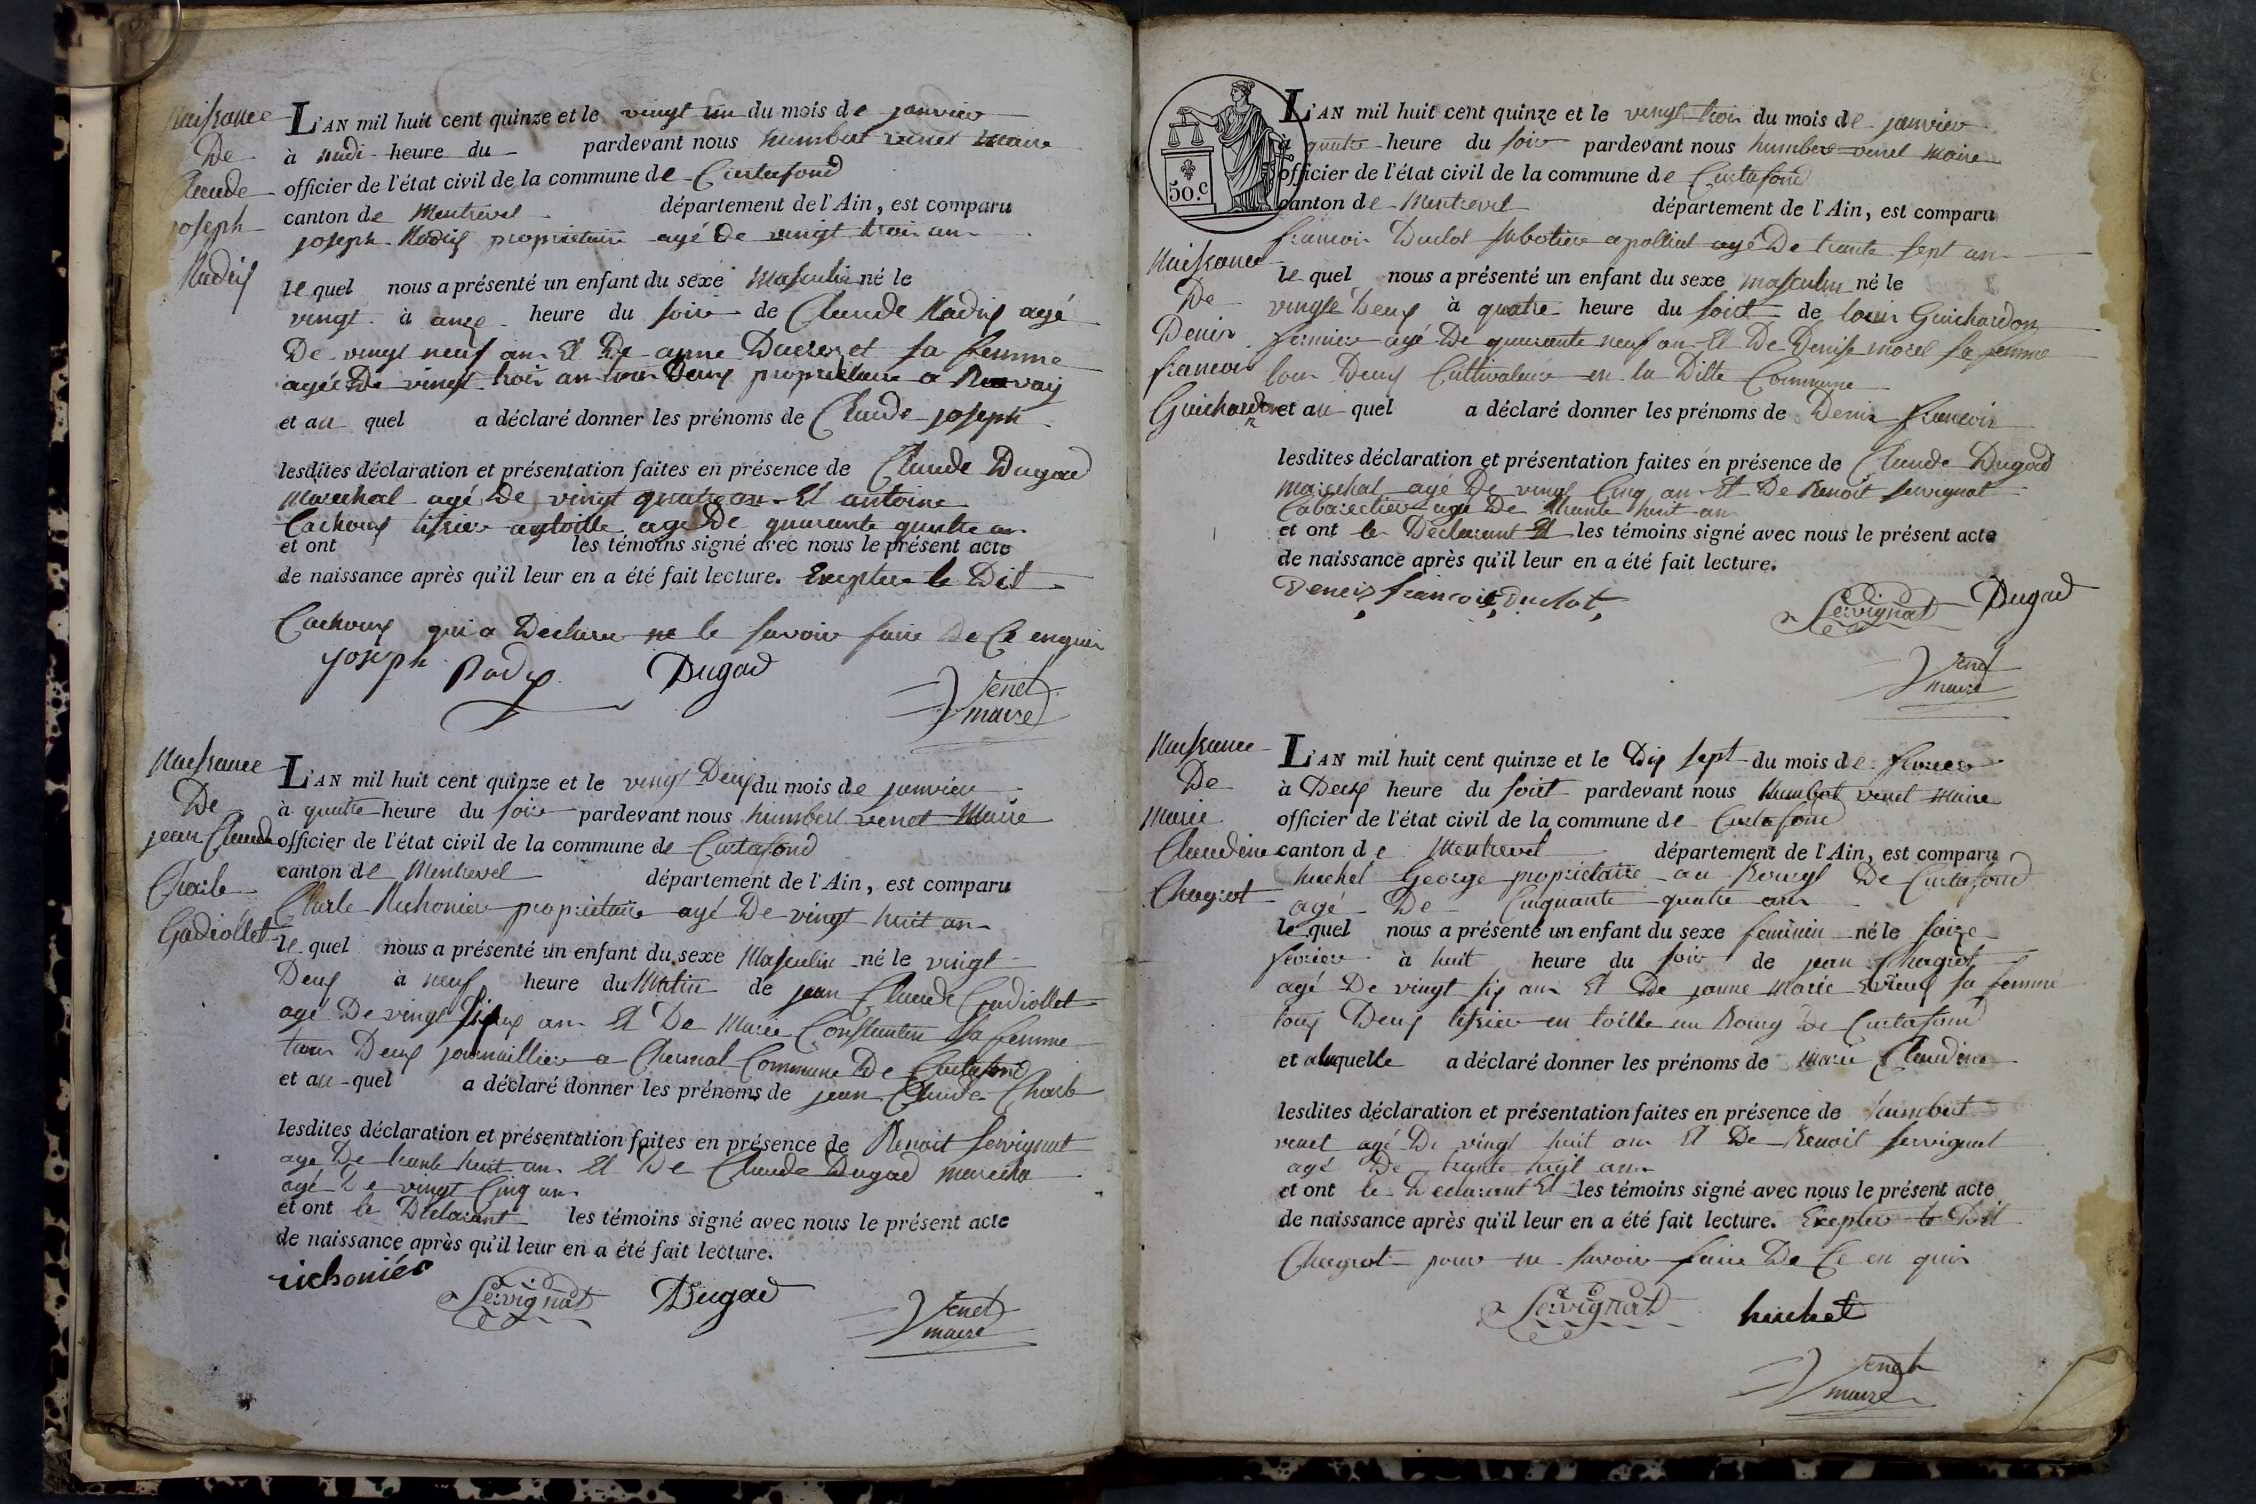 Naissance
De
Claude
joseph
Nadix
L'AN mil huit cent quinze et le vingt un du mois de janvier
à midi heure du pardevant nous humbert venet maire
officier de l'état civil de la commune de Curtafond
canton de Montrevel département de l'Ain, est comparu
joseph Nadix proprietaire agé De vingt trois an
le quel nous a présenté un enfant du sexe Masculin né le
vingt à onze heure du soire de Claude Nadix agé
De vingt neuf an Et De anne Ducrozet sa femme
agée De vingt trois an tous Deux proprietaire a
et au quel a déclaré donner les prénoms de Claude joseph
lesdites déclaration et présentation faites en présence de Claude Dugad
Marechal agé De vingt quatre an Et antoine
Cachoux tisier agé De quarante quatre an
et ont les témoins signé avec nous le présent acte
de naissance après qu'il leur en a été fait lecture. Exeptee le Dit
Cachoux qui a Declare ne le savoir faire De Ce enquis
joseph Dugad
Venet
maire
Naissance
De
jean Claude
Charle
Gadiollet
L'AN mil huit cent quinze et le vingt Deux du mois de janvier
à quatre heure du soire pardevant nous humbert venet Maire
officier de l'état civil de la commune de Curtafond
canton de Montrevel département de l'Ain, est comparu
Charle Richonier proprietaire agé De vingt huit an
le quel nous a présenté un enfant du sexe Masculin né le vingt
Deux à neuf heure du Matin de jean Claude Gadiollet
agé De vingt an Et De Marie Constantin sa femme
tous Deux journaillier a Commune De Curtafond
et au quel a déclaré donner les prénoms de jean Claude Charle
lesdites déclaration et présentation faites en présence de Benoit servignat
agé De trante huit an Et De Claude Dugad marecha
agé De vingt Cinq an
et ont le Declarant les témoins signé avec nous le présent acte
de naissance après qu'il leur en a été fait lecture.
richonier
Servignat Dugad
Venet
maire
50.c
L'AN mil huit cent quinze et le vingt trois du mois de janvier
à quatre heure du soire pardevant nous humbert venet Maire
officier de l'état civil de la commune de Curtafond
canton de Montrevel département de l'Ain, est comparu
francois Duclot sabotier a polliat agé De trante sept an
Naissance
De
Denis
francois
Guichardon
le quel nous a présenté un enfant du sexe masculin né le
vingt Deux à quatre heure du soire de louis Guichardon
fermier agé De quarante neuf an Et De Denise morel sa femme
tous Deux Cultivateur en la Ditte Commune
et au quel a déclaré donner les prénoms de Denis francois
lesdites déclaration et présentation faites en présence de Claude Dugad
marechal agé De vingt Cinq an Et De Benoit servignat
Cabaretier agé De trante huit an
et ont le Declarant Et les témoins signé avec nous le présent acte
de naissance après qu'il leur en a été fait lecture.
Deneis francois Duclot
Servignat Dugad
Venet
maire
Naissance
De
Marie
Claudine
Chagrot
L'AN mil huit cent quinze et le Dix sept du mois de fevrier
à Deux heure du soire pardevant nous humbert venet Maire
officier de l'état civil de la commune de Curtafond
canton de Montrevel département de l'Ain, est comparu
huchet George proprietaire au Bourg De Curtafond
agé De Cinquante quatre ans
le quel nous a présenté un enfant du sexe feminin né le saize
fevrier à huit heure du soir de jean Chagrot
agé De vingt six ans Et De janne Marie sa femme
tous Deux tisier en toille au Bourg De Curtafond
et a laquelle a déclaré donner les prénoms de Marie Claudine
lesdites déclaration et présentation faites en présence de humbert
venet agé De vingt huit ans Et De Benoit servignat
agé De trante huit ans
et ont le Declarant Et les témoins signé avec nous le présent acte
de naissance après qu'il leur en a été fait lecture. Exeptee le Dit
Chagrot pour ne savoir faire De Ce en quis
Servignat huchet
Venet
maire